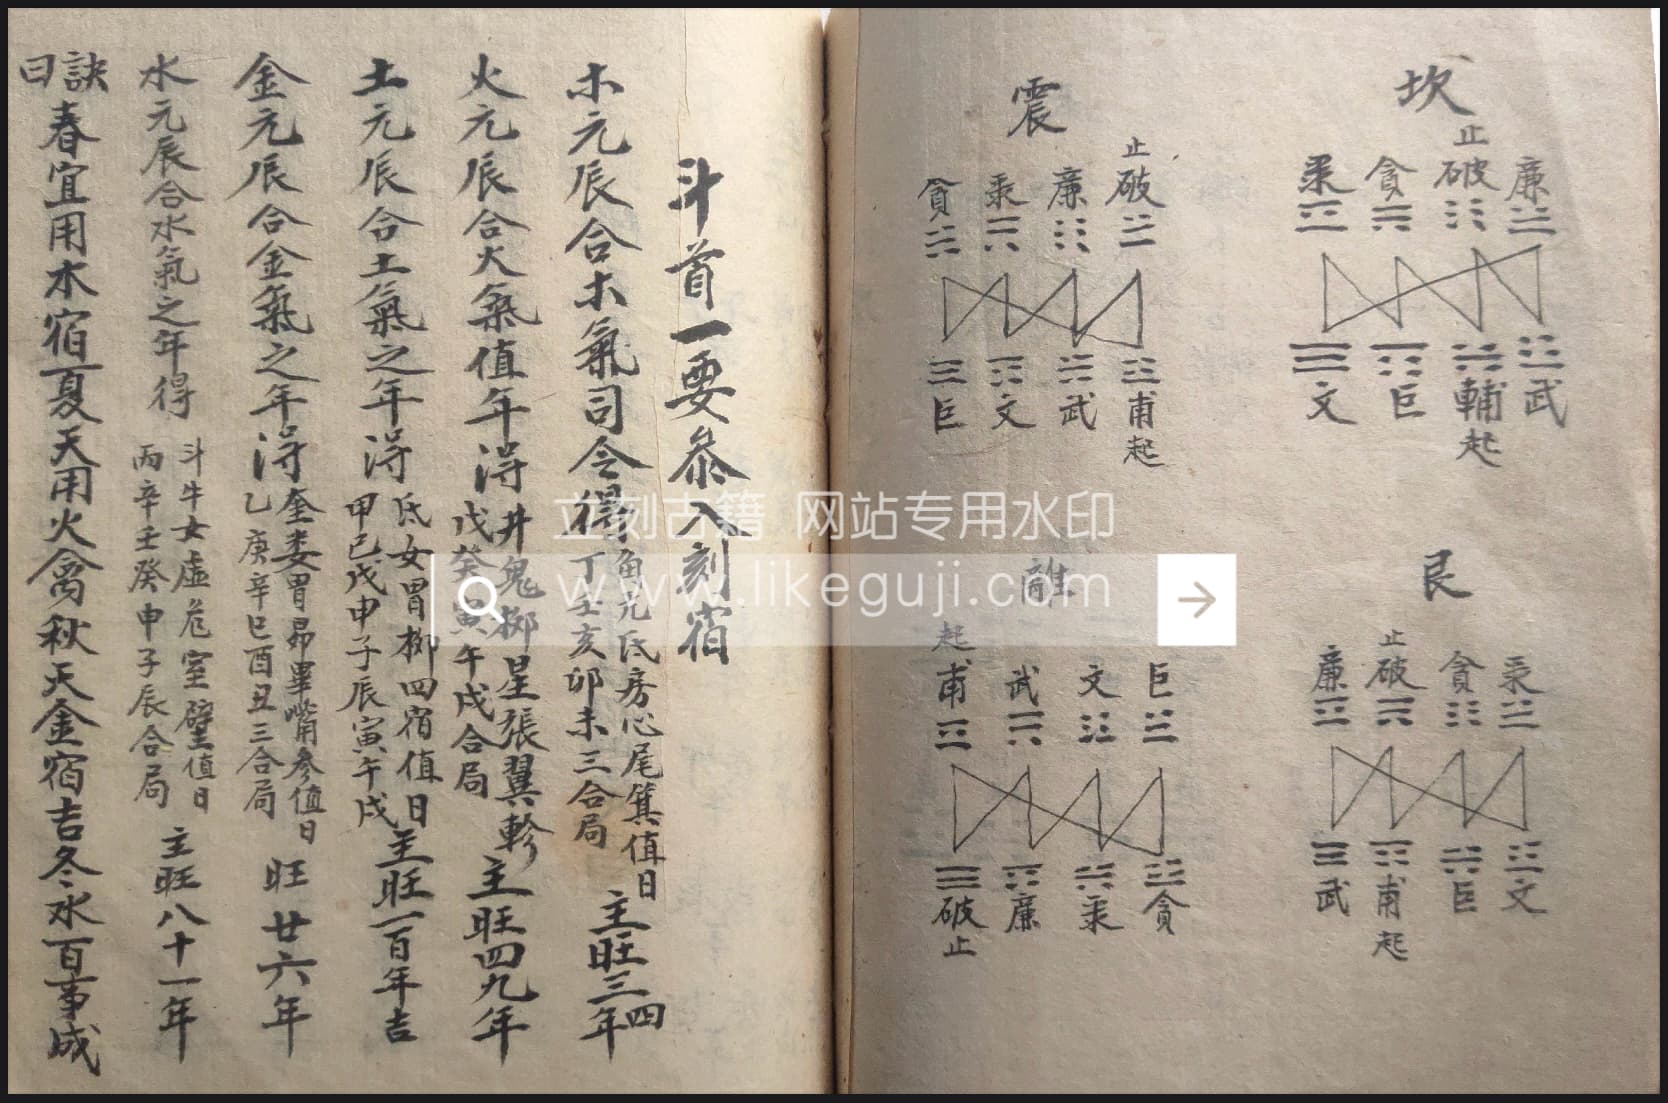 坎
廉 破止 貪 柔
武 輔起 巨 文
震
止破 廉 柔 貪
甫起 武 文 巨
艮
柔 貪 破止 廉
文 巨 甫起 武
離
巨 文 武 起甫
貪 柔 廉 破止
斗首一要叅入刻宿
木元辰合木氣司令得
角亢氐房心尾箕值日
丁壬亥卯未三合局
主旺三四年
火元辰合火氣值年得
井鬼柳星張翼軫
戊癸寅午戌合局
主旺四九年
土元辰合土氣之年得
氐女胃柳四宿值日
甲己戊申子辰寅午戌
主旺一百年吉
金元辰合金氣之年得
奎婁胃昴畢嘴參值日
乙庚辛巳酉丑三合局
旺廿六年
水元辰合水氣之年得
斗牛女虛危室壁值日
丙辛壬癸申子辰合局
主旺八十一年
訣曰
春宜用木宿夏天用火禽秋天金宿吉冬水百事成
立刻古籍 网站专用水印
www.likeguji.com